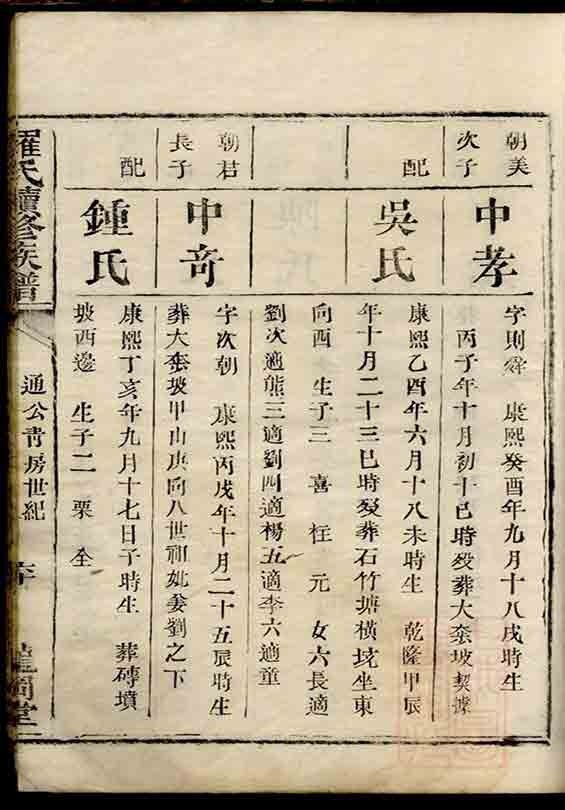 朝美
次子
中孝
字則舜 康熙癸酉年九月十八戌時生
丙子年十月初十巳時歿葬大坌坡契據
配
吳氏
康熙乙酉年六月十八未時生 乾隆甲辰
年十月二十三巳時歿葬石竹塘橫坑坐東
向酉 生子三 喜 枉 元 女六長適
劉次適熊三適劉四適楊五適李六適童
朝君
長子
中奇
字次朝 康熙丙戌年十月二十五辰時生
葬大坌坡甲山庚向八世祖妣姜劉之下
配
鍾氏
康熙丁亥年九月十七日子時生 葬磚墳
坡西邊 生子二 栗 全
羅氏續修族譜
通公青房世紀